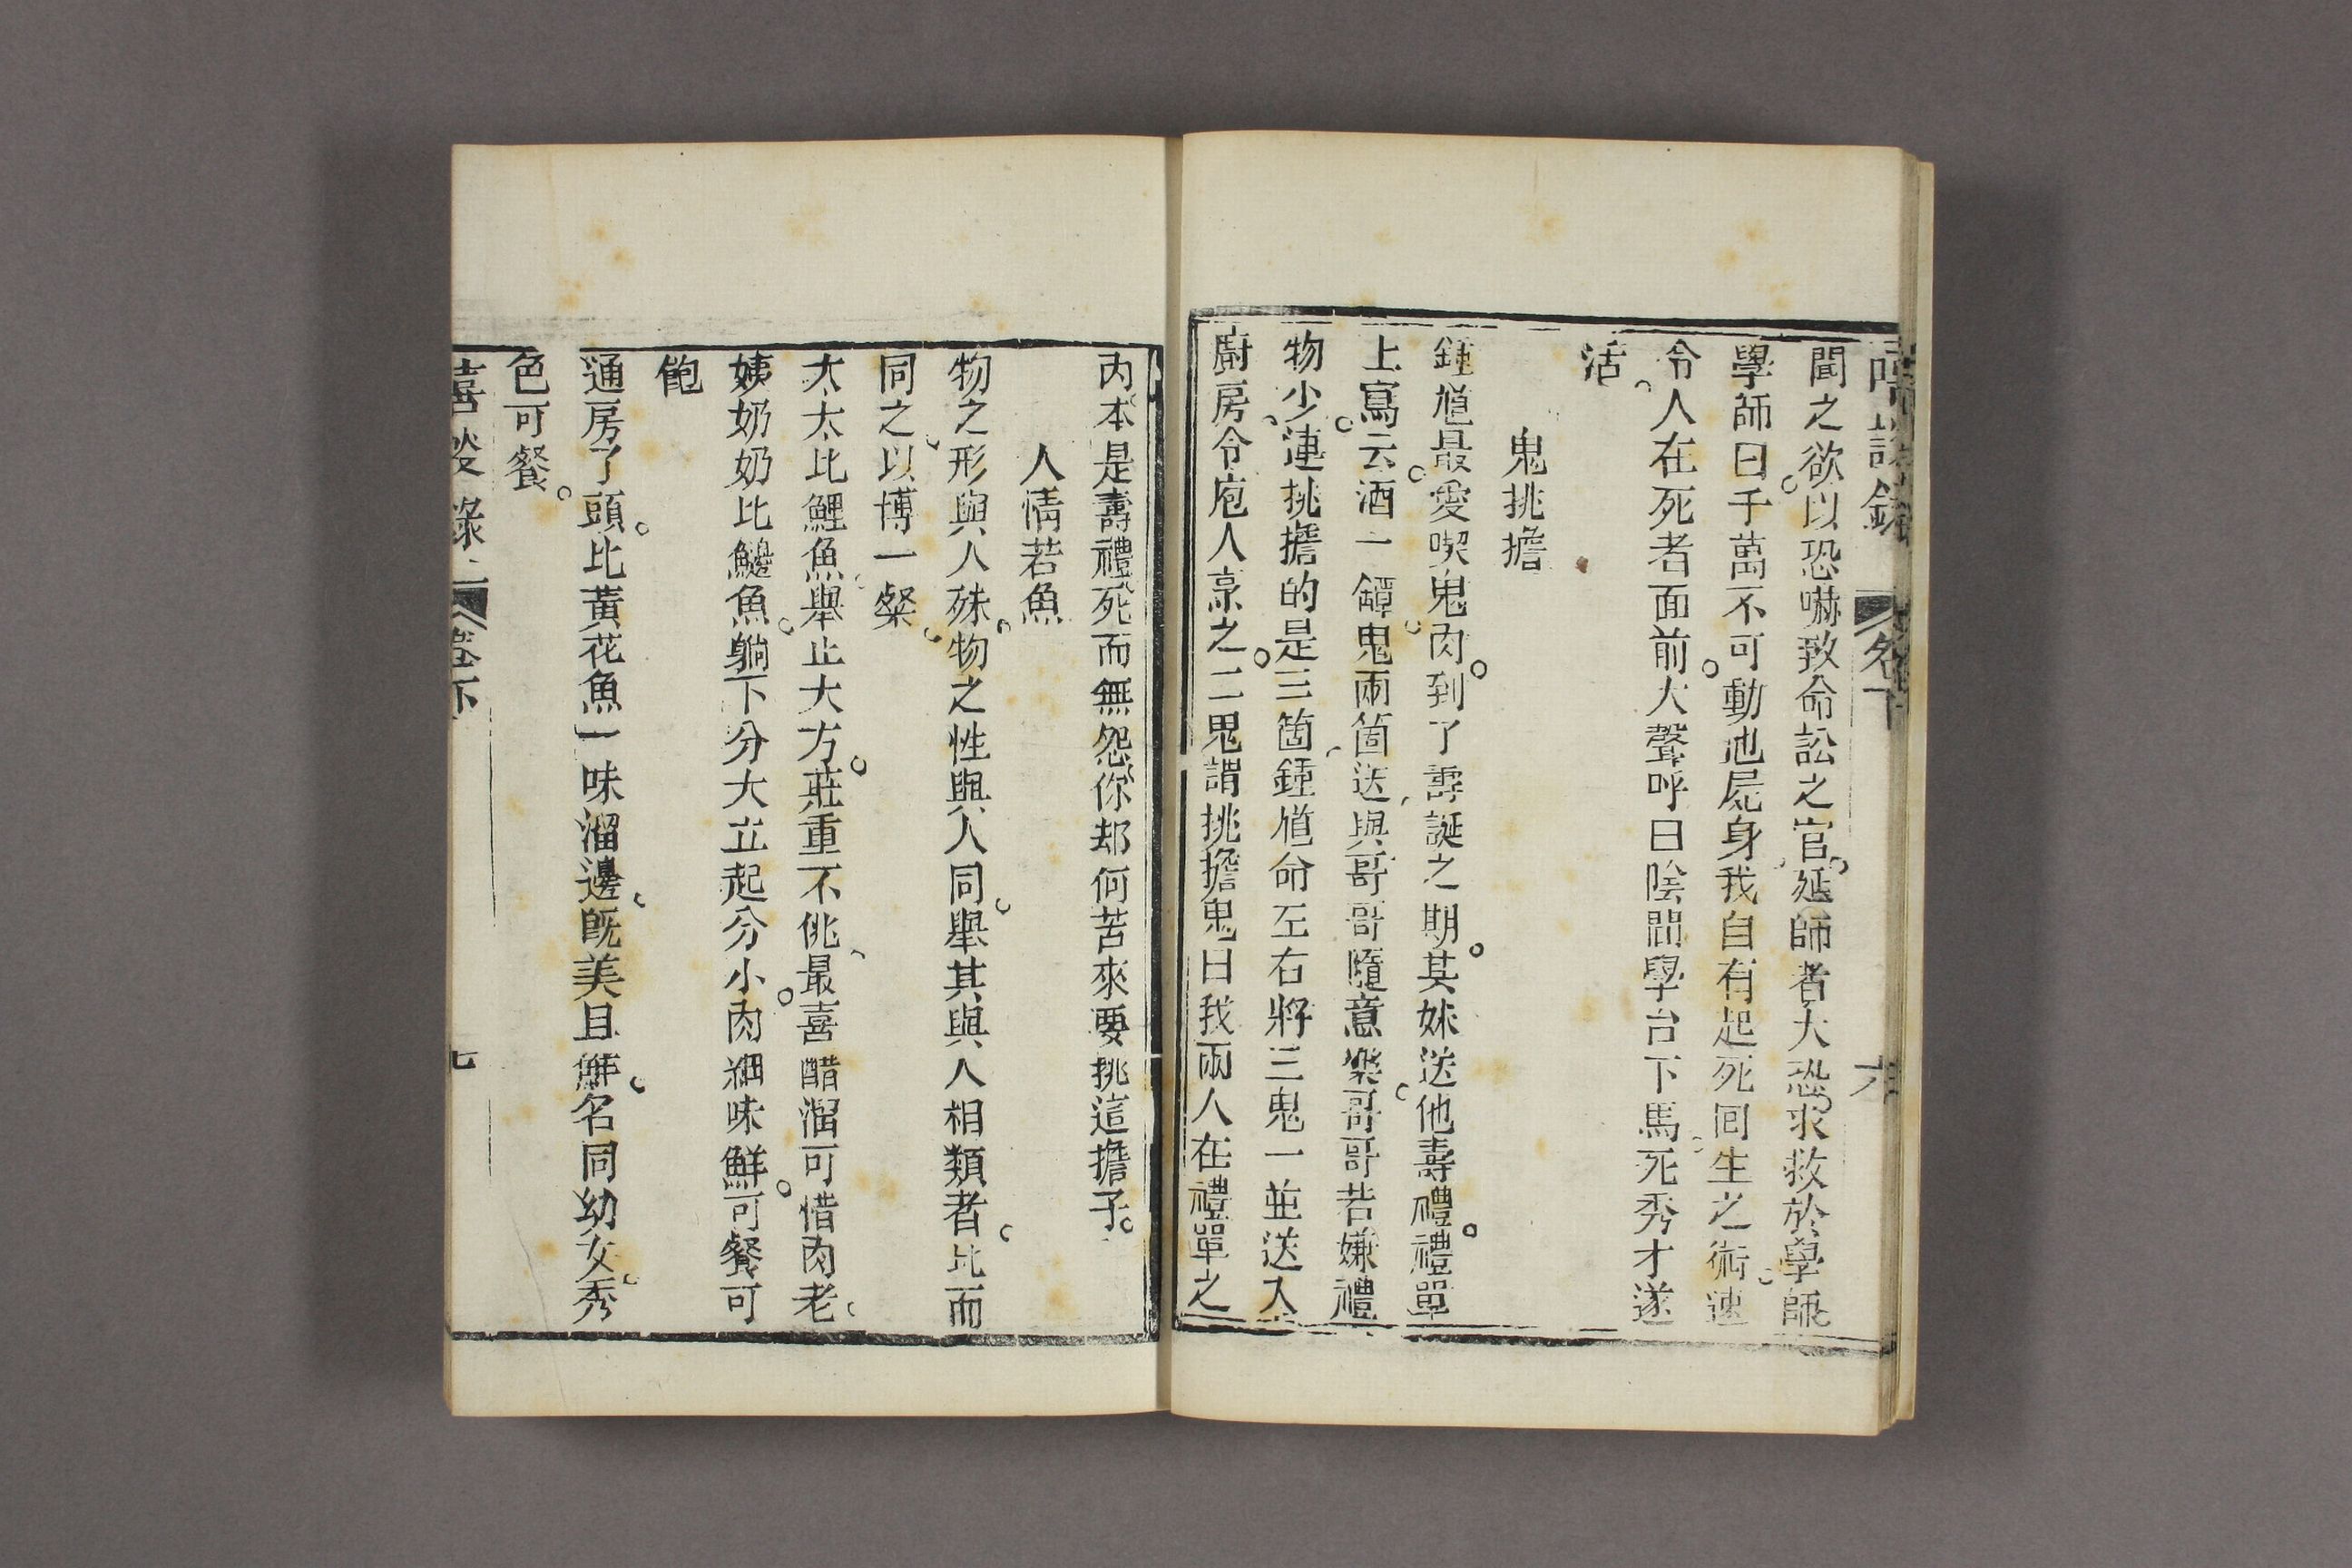 聞之欲以恐嚇致命訟之官延師者大恐求救於學師
學師曰千萬不可動他屍身我自有起死囘生之術速
令人在死者面前大聲呼曰陰間學台下馬死秀才遂
活
鬼挑擔
鍾馗最愛喫鬼肉到了壽誕之期其妹送他壽禮禮單
上寫云酒一罈鬼兩箇送與哥哥隨意樂哥哥若嫌禮
物少連挑擔的是三箇鍾馗命左右將三鬼一並送入
廚房令庖人烹之二鬼謂挑擔鬼曰我兩人在禮單之
內本是壽禮死而無怨你却何苦來要挑這擔子
人情若魚
物之形與人殊物之性與人同舉其與人相類者比而
同之以博一粲
太太比鯉魚舉止大方莊重不佻最喜醋溜可惜肉老
姨奶奶比鯿魚躺下分大立起分小肉細味鮮可餐可
飽
通房了頭比黃花魚一味溜邊旣美且鮮名同幼女秀
色可餐
嘻談錄 卷下 七